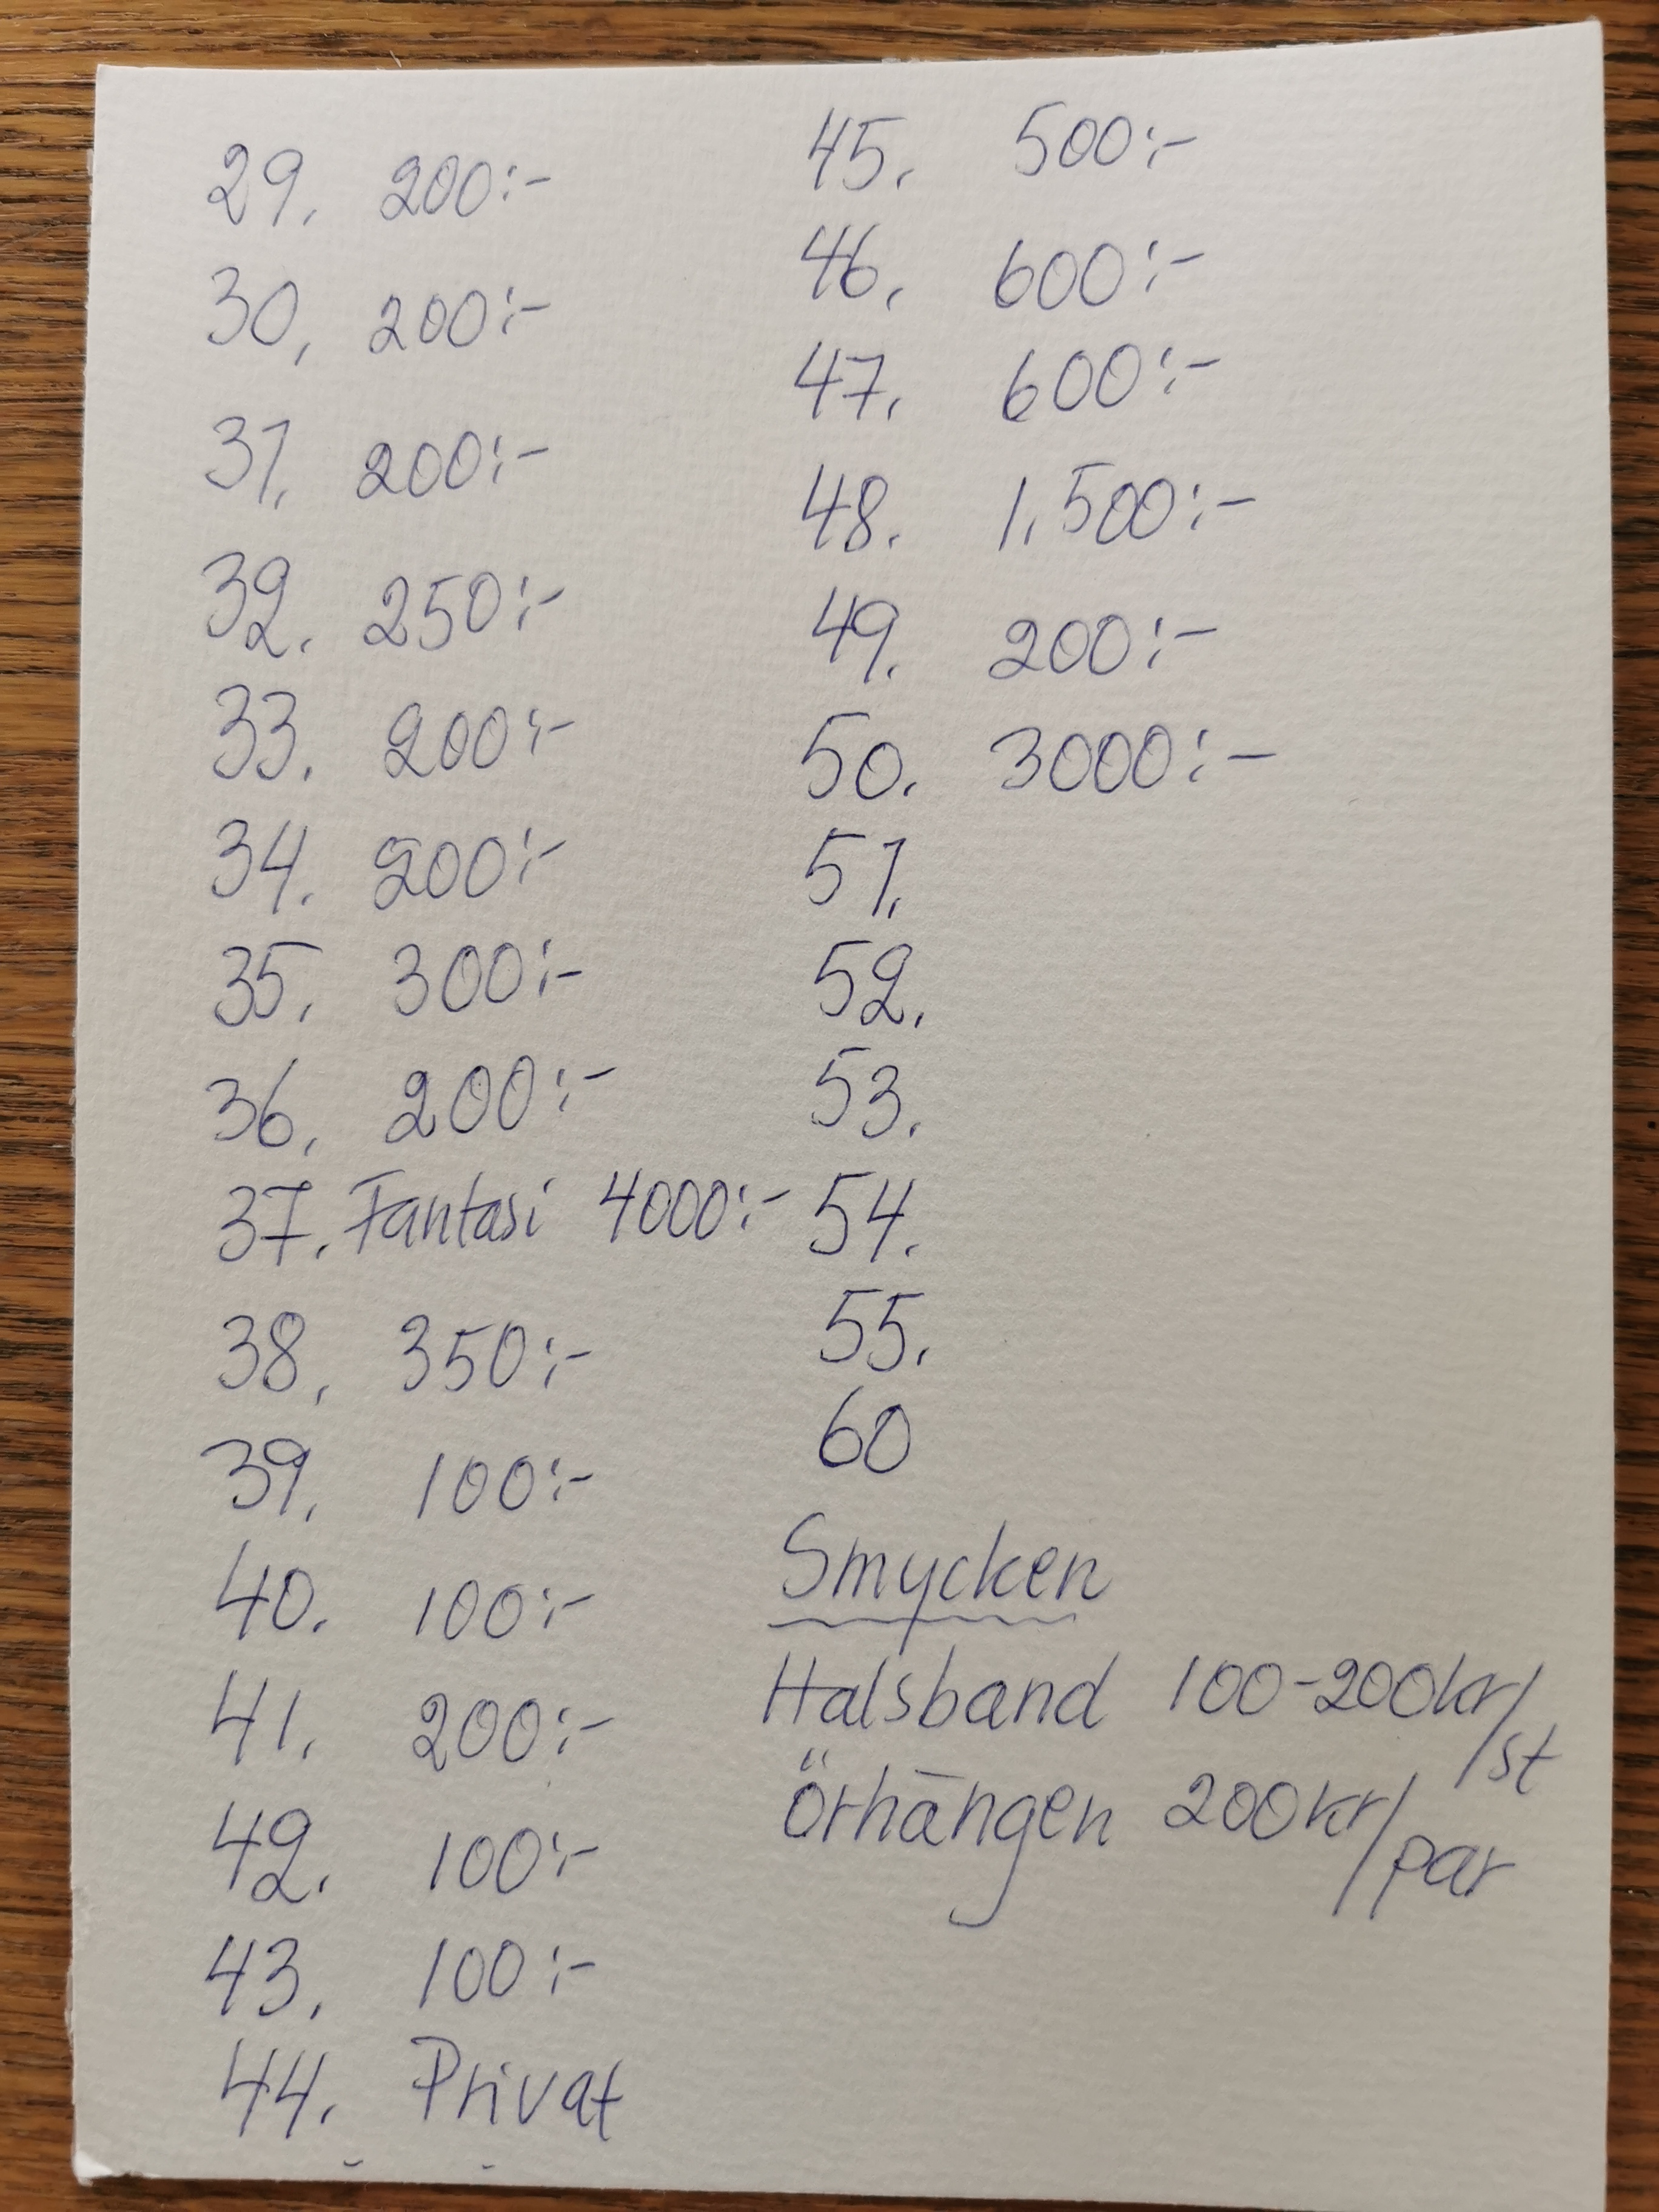 29. 200:-
30. 200:-
31. 200:-
32. 250:-
33. 200:-
34. 200:-
35. 300:-
36. 200:-
37. Fantasi 4000:-
38. 350:-
39. 100:-
40. 100:-
41. 200:-
42. 100:-
43. 100:-
44. Privat
45. 500:-
46. 600:-
47. 600:-
48. 1.500:-
49. 200:-
50. 3000:-
51.
52.
53.
54.
55.
60
Smycken
Halsband 100-200kr/st
Örhängen 200kr/par